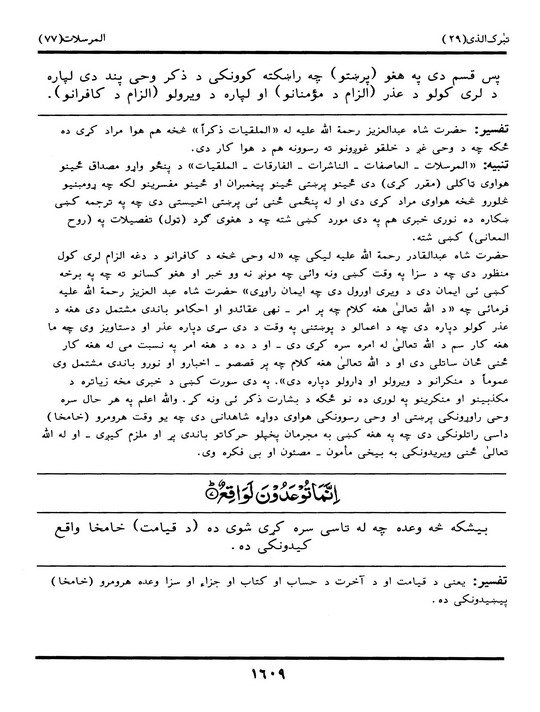 تبٰرک الذی (٢٩) المرسلات (٧٧)
پس قسم دی په هغو (پرښتو) چه راښکته کوونکی د ذکر وحی پند دی لپاره
د لری کولو د عذر (الزام د مؤمنانو) او لپاره د ویرولو (الزام د کافرانو).
تفسیر: حضرت شاه عبدالعزیز رحمة الله علیه له «الملقیات ذکراً» څخه هم هوا مراد کړی ده
ځکه چه د وحی غږ د خلقو غوږونو ته رسوونه هم د هوا کار دی.
تنبیه: «المرسلات ـ العاصفات ـ الناشرات ـ الفارقات ـ الملقیات» د پنځو واړو مصداق ځینو
هواوی ټاکلی (مقرر کړی) دی ځینو پرښتی ځینو پیغمبران او ځینو مفسرینو لکه چه ړومبنیو
څلورو څخه هواوی مراد کړی دی او له پنځمی ځنی ئی پرښتی اخیستی دی چه په ترجمه کښی
ښکاره ده نوری خبری هم په دی مورد کښی شته چه د هغوی ګرد (ټول) تفصیلات په (روح
المعانی) کښی شته.
حضرت شاه عبدالقادر رحمة الله علیه لیکی چه «له وحی څخه د کافرانو د دغه الزام لری کول
منظور دی چه د سزا په وقت کښی ونه وائی چه مونږ نه وو خبر او هغو کسانو ته چه په برخه
کښی ئی ایمان دی د ویری اورول دی چه ایمان راوړی» حضرت شاه عبد العزیز رحمة الله علیه
فرمائی چه «د الله تعالیٰ هغه کلام چه پر امر ـ نهی عقائدو او احکامو باندی مشتمل دی هغه د
عذر کولو دپاره دی چه د اعمالو د پوښتنی په وقت د دی سړی دپاره عذر او دستاویز وی چه ما
هغه کار سم د الله تعالیٰ له امره سره کړی دی ـ او د ده د هغه امر په نسبت می له هغه کار
ځنی ځان ساتلی دی او د الله تعالیٰ هغه کلام چه پر قصصو ـ اخبارو او نورو باندی مشتمل وی
عموماً د منکرانو د ویرولو او ډارولو دپاره دی». په دی سورت کښی د خبری مخه زیاتره د
مکذبینو او منکرینو په لوری ده نو ځکه د بشارت ذکر ئی ونه کړ. والله اعلم په هر حال سره
وحی راوړونکی پرښتی او وحی رسوونکی هواوی دواړه شاهدانی دی چه یو وقت هرومرو (خامخا)
داسی راتلونکی دی چه په هغه کښی به مجرمان پخپلو حرکاتو باندی پړ او ملزم کیږی ـ او له الله
تعالیٰ ځنی ویریدونکی به بیخی مأمون ـ مصئون او بی فکره وی.
اِنَّمَا تُوْعَدُوْنَ لَوَاقِعٌ ؕ﴿٧﴾
بیشکه څه وعده چه له تاسی سره کړی شوی ده (د قیامت) خامخا واقع
کیدونکی ده.
تفسیر: یعنی د قیامت او د آخرت د حساب او کتاب او جزاء او سزا وعده هرومرو (خامخا)
پیښیدونکی ده.
١٦٠٩